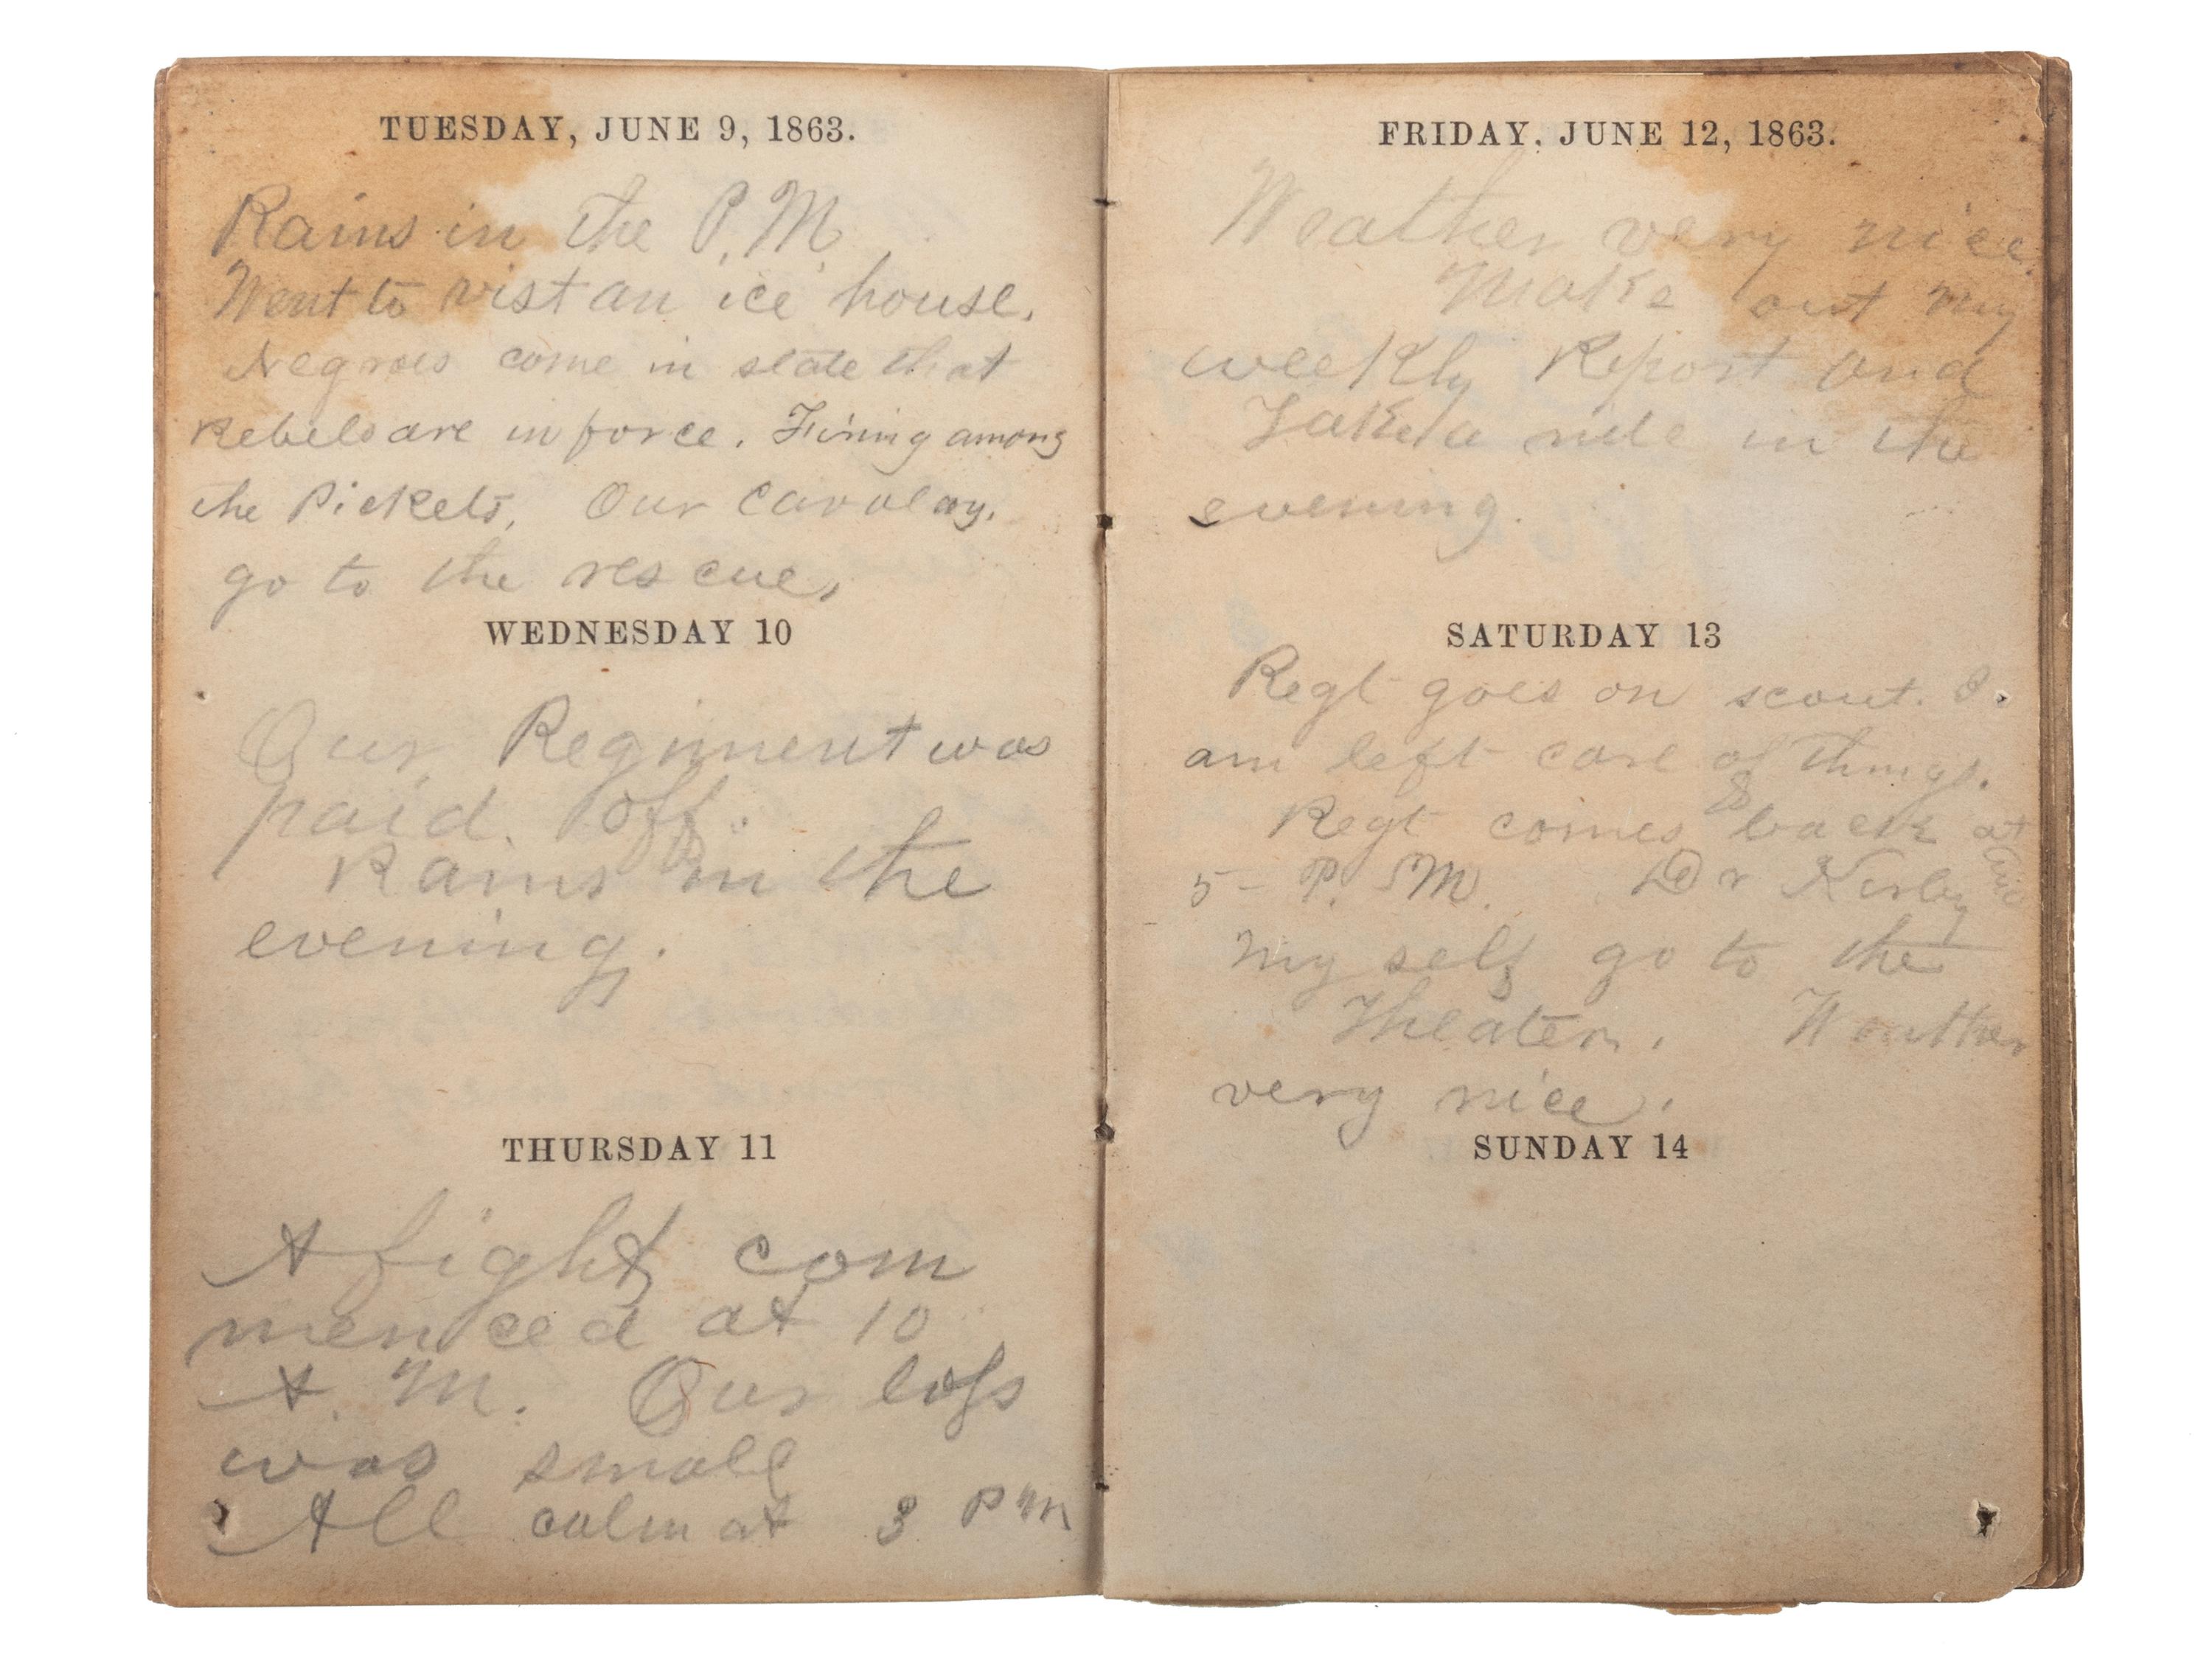 TUESDAY, JUNE 9, 1863.
Rains in the P.M.
Went to vist an ice house.
Negroes come in state that
Rebels are in force. Firing among
the Pickets. Our Cavalay.
go to the rescue.
WEDNESDAY 10
Our Regiment was
paid off.
Rains in the
evening.
THURSDAY 11
A fight com
menced at 10
A. M. Our loss
was small
All calm at 3 PM
FRIDAY, JUNE 12, 1863.
Weather very nice.
Make out my
weekly Report and
Take a ride in the
evening.
SATURDAY 13
Regt goes on scout. I.
am left care of things.
Regt comes back at
5- P. M. Dr Kirby and
my self go to the
Theater. Weather
very nice.
SUNDAY 14